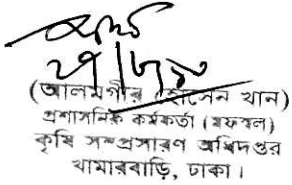 (আলমগীর হোসেন খান)
প্রশাসনিক কর্মকর্তা (মফস্বল)
কৃষি সম্প্রসারণ অধিদপ্তর
খামারবাড়ি, ঢাকা।